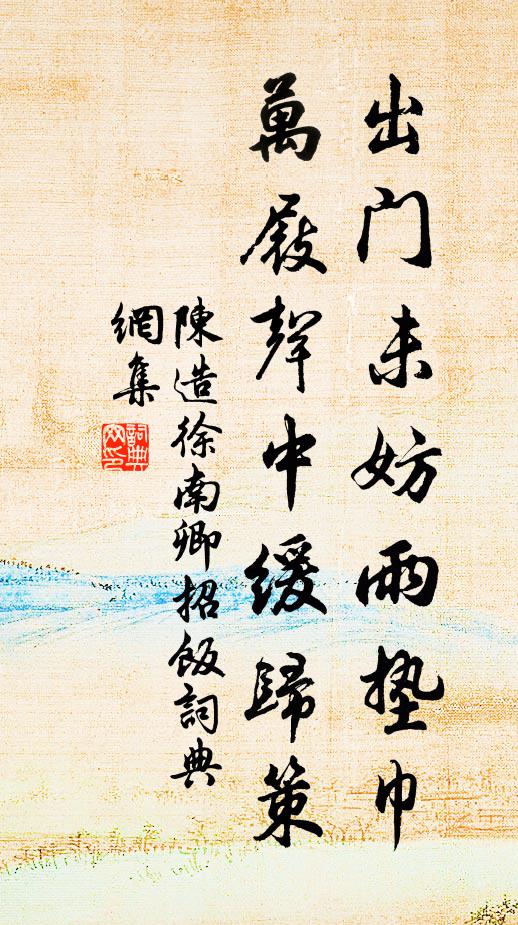 出门未妨雨垫巾
萬屐聲中緩歸策
陳造徐南卿招飯詞典
網集
詞典